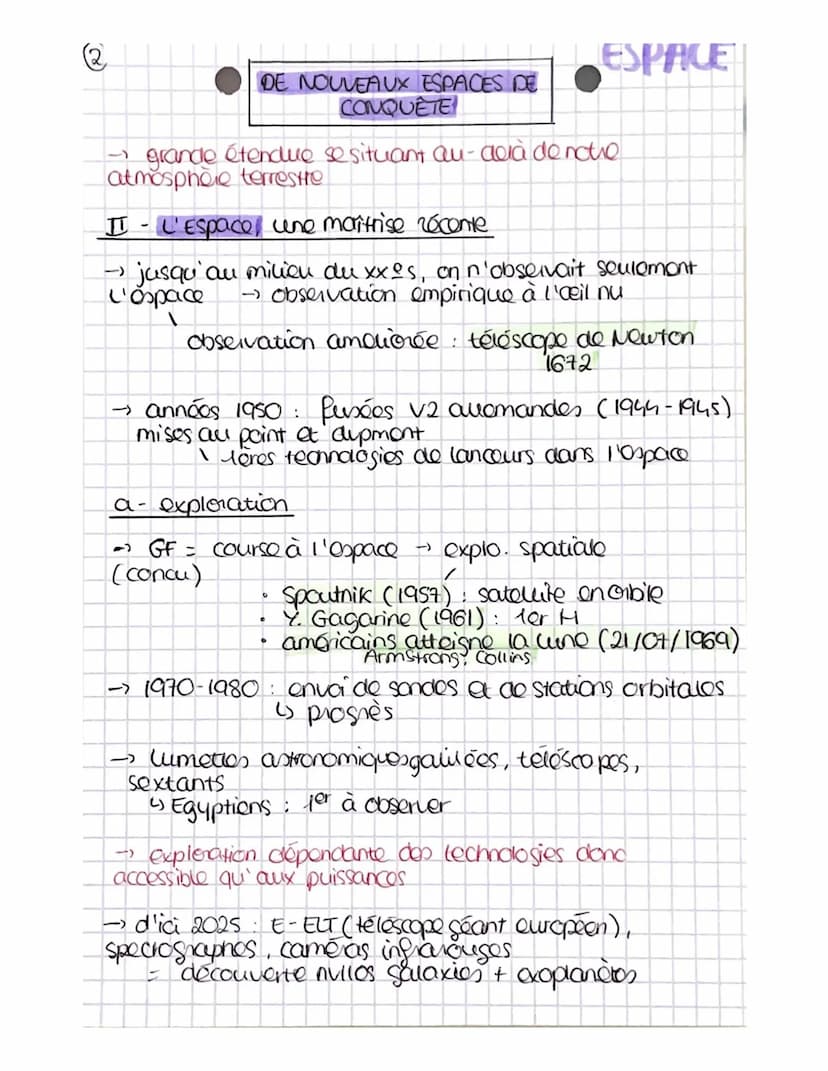 2
ESPACE
DE NOUVEAUX ESPACES DE
CONQUÊTE
→ grande étendue se situant au-delà de notre
atmosphère terrestre
II - L'Espace, une maîtrise récente
→ jusqu'au milieu du xxes, on n'observait seulement
l'espace → observation empirique à l'œil nu
observation améliorée : téléscope de Newton
1672
→ années 1950 : fusées V2 allemandes (1944-1945)
mises au point et dvpmont
1ères technologies de lanceurs dans l'espace
a- exploration
→ GF = course à l'espace → explo. spatiale
(concu)
• Spoutnik (1957) : satellite en orbite
• Y. Gagarine (1961) : 1er H
• américains atteigne la lune (21/07/1969)
Armstrong, Collins
→ 1970-1980 : envoi de sondes et de stations orbitales
↳ progrès
→ lunettes astronomiques galilées, téléscopes,
sextants
↳ Egyptiens : 1er à observer
→ exploration dépendante des technologies donc
accessible qu'aux puissances
→ d'ici 2025 : E-ELT (téléscope géant européen),
spectographes, caméras infrarouges
= découverte nvlles galaxies + exoplanètes